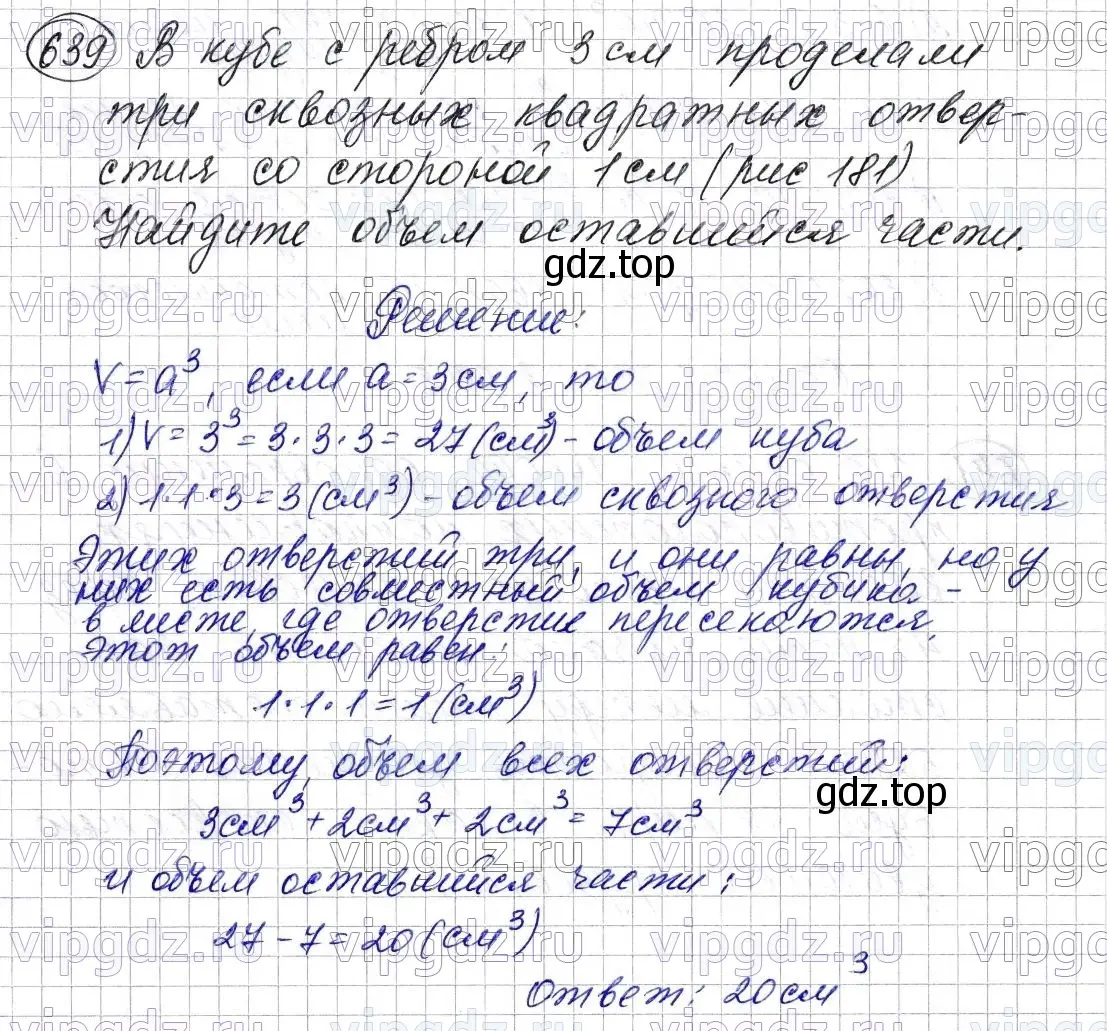 639 В кубе с ребром 3 см проделали
три сквозных квадратных отвер-
стия со стороной 1 см (рис 181)
Найдите объем оставшийся части.
gdz.top
Решение:
V = a³, если a = 3 см, то
1) V = 3³ = 3 · 3 · 3 = 27 (см³) - объем куба
2) 1 · 1 · 3 = 3 (см³) - объем сквозного отверстия
Этих отверстий три, и они равны, но у
них есть совместный объем кубика -
в месте, где отверстие пересекаются,
Этот объем равен:
1 · 1 · 1 = 1 (см³)
Поэтому объем всех отверстий:
gdz.top
3 см³ + 2 см³ + 2 см³ = 7 см³
и объем оставшийся части:
27 - 7 = 20 (см³)
Ответ: 20 см³